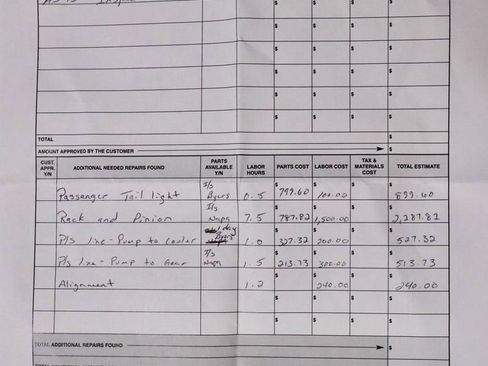 Inspec
TOTAL $
AMOUNT APPROVED BY THE CUSTOMER $
CUST. APPR. Y/N ADDITIONAL NEEDED REPAIRS FOUND PARTS AVAILABLE Y/N LABOR HOURS PARTS COST LABOR COST TAX & MATERIALS COST TOTAL ESTIMATE
Passenger Tail light I/s Byers 0.5 $ 799.60 $ 100.00 $ $ 899.60
Rack and Pinion I/s Napa 7.5 $ 787.82 $ 1,500.00 $ $ 2,287.82
P/s line - Pump to Cooler 1 day Byers 1.0 $ 327.32 $ 200.00 $ $ 527.32
P/s line - Pump to Gear Napa 1.5 $ 213.73 $ 300.00 $ $ 513.73
Alignment 1.2 $ $ 240.00 $ $ 240.00
TOTAL ADDITIONAL REPAIRS FOUND $